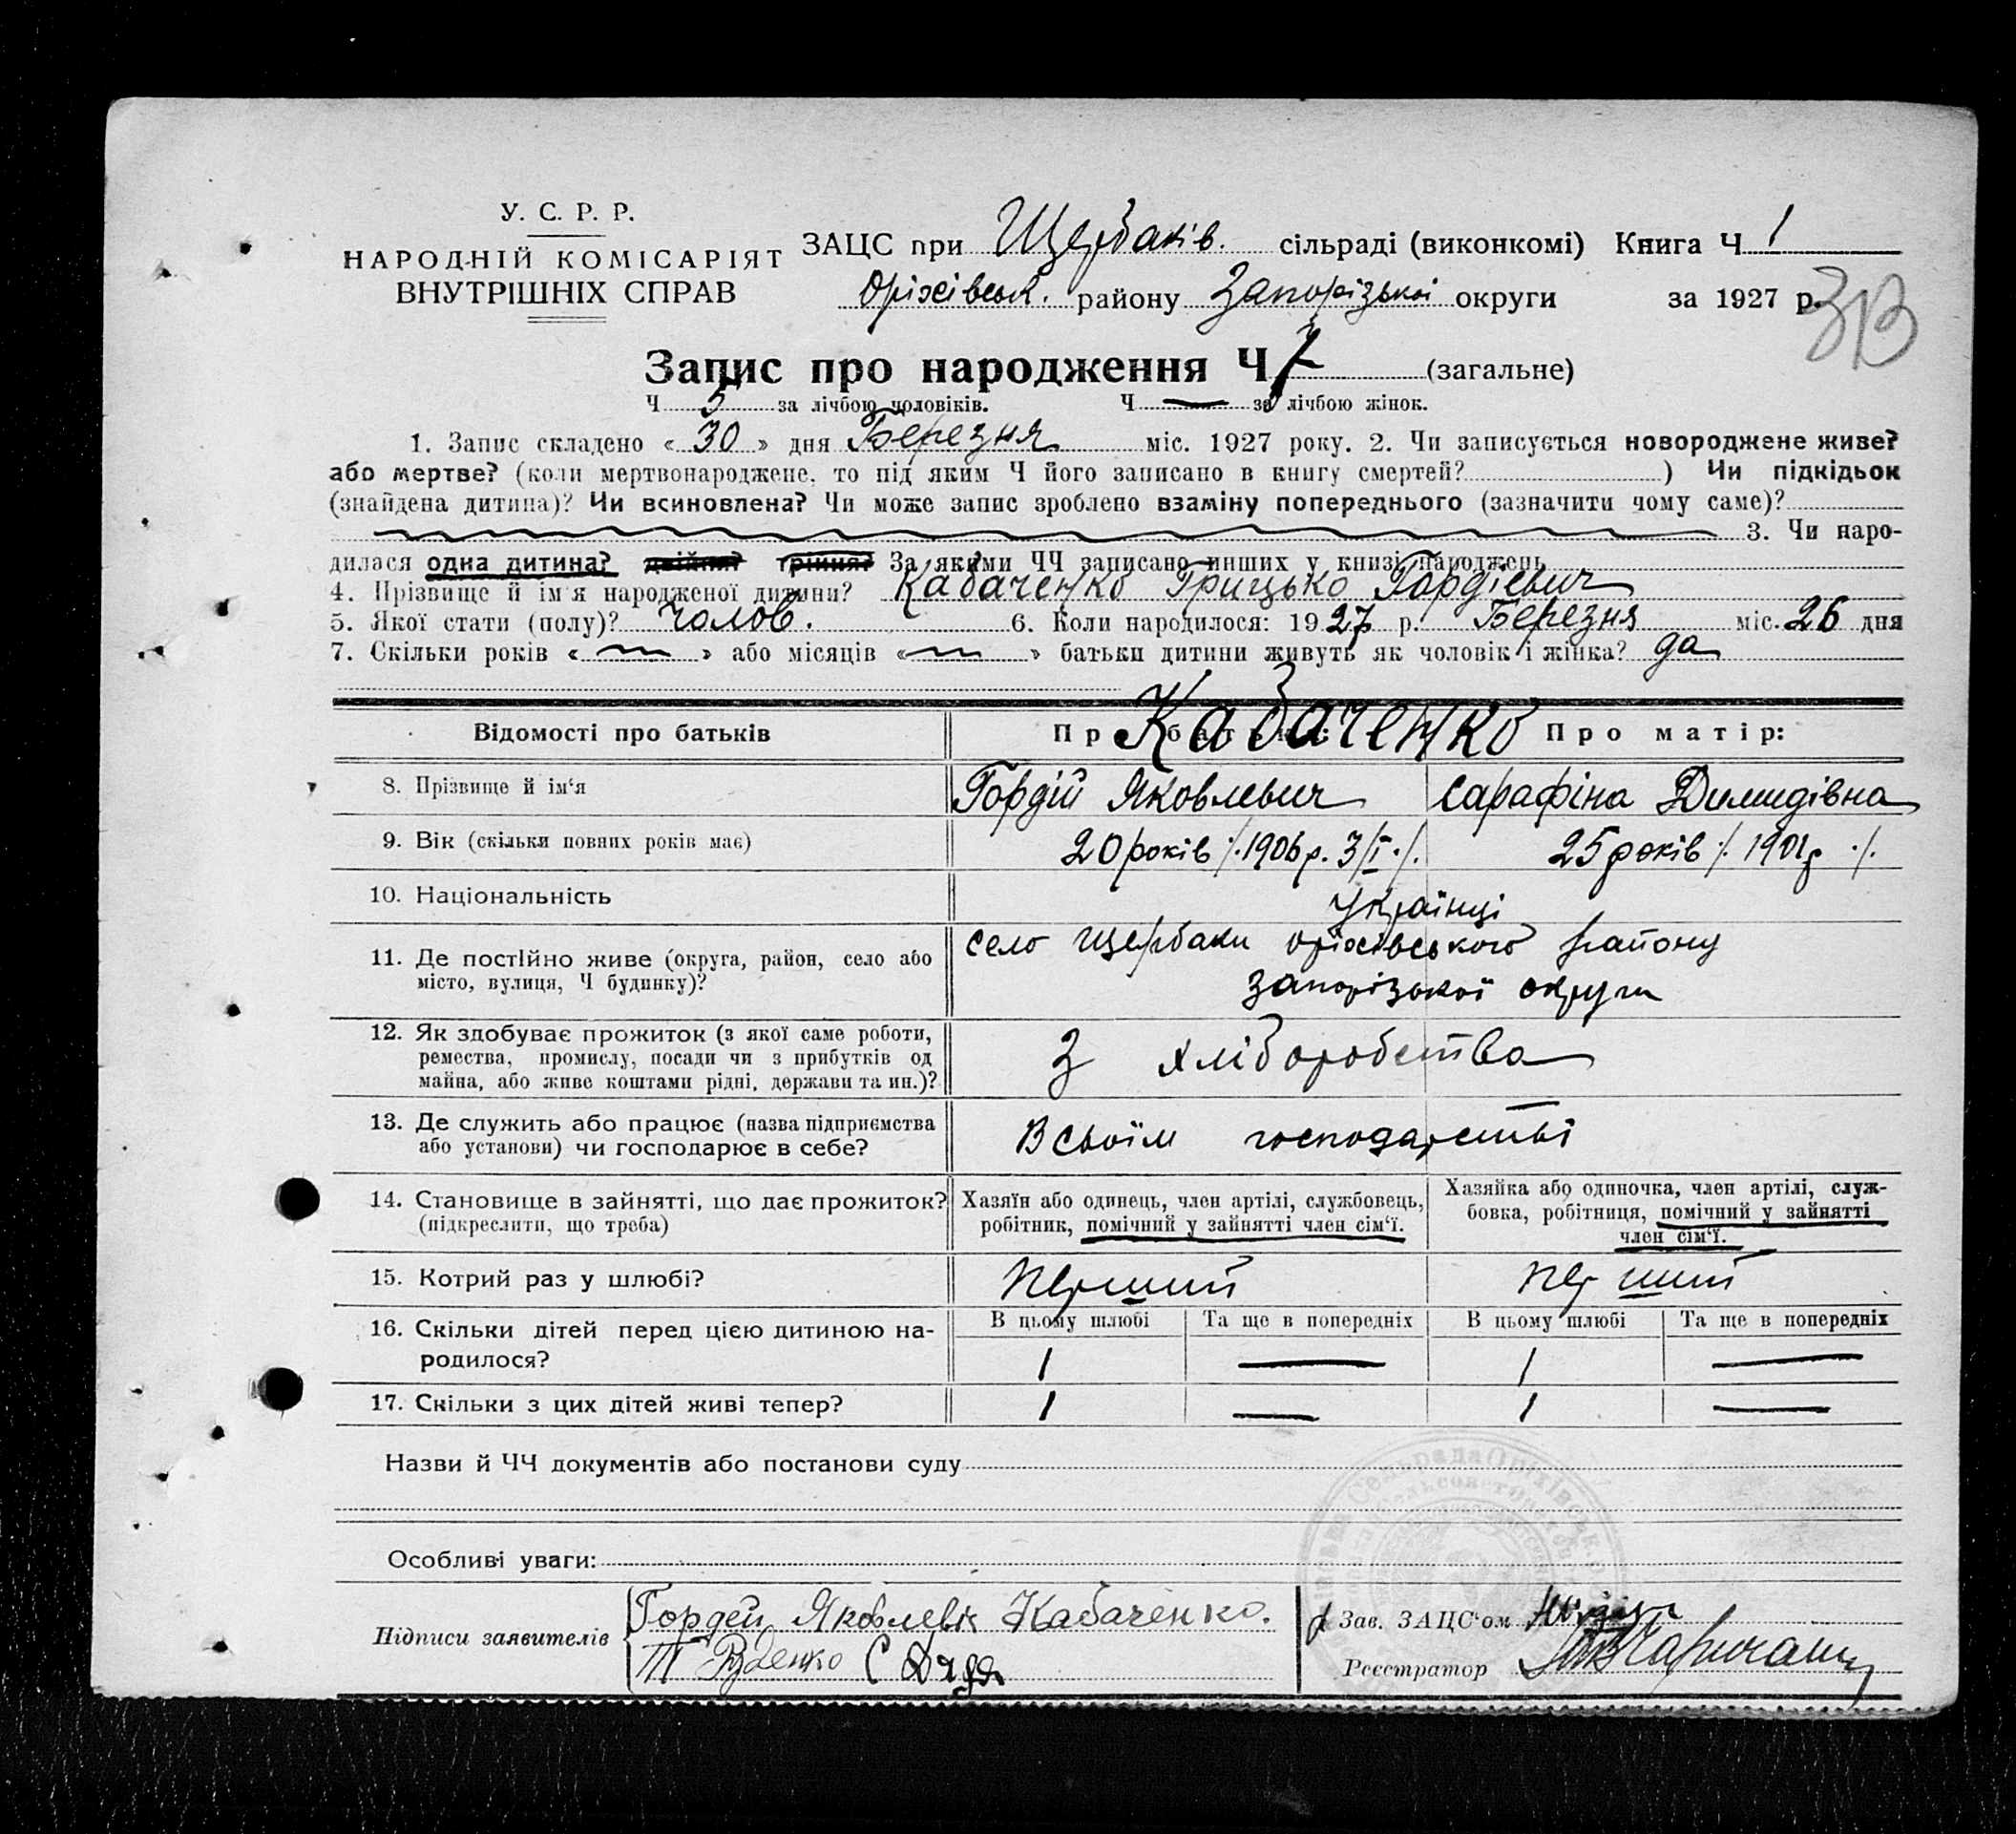 У. С. Р. Р.
НАРОДНІЙ КОМІСАРІЯТ
ВНУТРІШНІХ СПРАВ
ЗАЦС при Щербаків. сільраді (виконкомі) Книга Ч 1
Оріхівськ. району Запорізької округи за 1927 р.
Запис про народження Ч 7 (загальне)
Ч 5 за лічбою чоловіків. Ч — за лічбою жінок.
1. Запис складено « 30 » дня Березня міс. 1927 року. 2. Чи записується новороджене живе?
або мертве? (коли мертвонароджене, то під яким Ч його записано в книгу смертей? ) Чи підкідьок
(знайдена дитина)? Чи всиновлена? Чи може запис зроблено взаміну попереднього (зазначити чому саме)?
3. Чи наро-
дилася одна дитина? двійня? трійня? За якими ЧЧ записано инших у книзі народжень
4. Прізвище й ім'я народженої дитини? Кабаченко Грицько Гордієвич
5. Якої стати (полу)? Чолов. 6. Коли народилося: 1927 р. Березня міс. 26 дня
7. Скільки років « » або місяців « » батьки дитини живуть як чоловік і жінка? да
Відомості про батьків Про батька: Кабаченко Про матір:
8. Прізвище й ім'я Гордій Яковлевич Сарафіна Димидівна
9. Вік (скільки повних років має) 20 років ·/. 1906 р. 3/I ·/. 25 років ·/. 1901 р ·/.
10. Національність Українці
11. Де постійно живе (округа, район, село або село Щербаки оріхівського району
місто, вулиця, Ч будинку)? запорізької округи
12. Як здобуває прожиток (з якої саме роботи,
ремества, промислу, посади чи з прибутків од З хліборобства
майна, або живе коштами рідні, держави та ин.)?
13. Де служить або працює (назва підприємства В своїм господарстві
або установи) чи господарює в себе?
14. Становище в зайнятті, що дає прожиток? Хазяїн або одинець, член артілі, службовець, Хазяйка або одиночка, член артілі, служ-
(підкреслити, що треба) робітник, помічний у зайнятті член сім'ї. бовка, робітниця, помічний у зайнятті
член сім'ї.
15. Котрий раз у шлюбі? Перший перший
16. Скільки дітей перед цією дитиною на- В цьому шлюбі Та ще в попередніх В цьому шлюбі Та ще в попередніх
родилося? 1 — 1 —
17. Скільки з цих дітей живі тепер? 1 — 1 —
Назви й ЧЧ документів або постанови суду
Особливі уваги:
Підписи заявителів Гордей Яковлевіч Кабаченко. Зав. ЗАЦС'ом
Т Руденко С Дядя Реєстратор